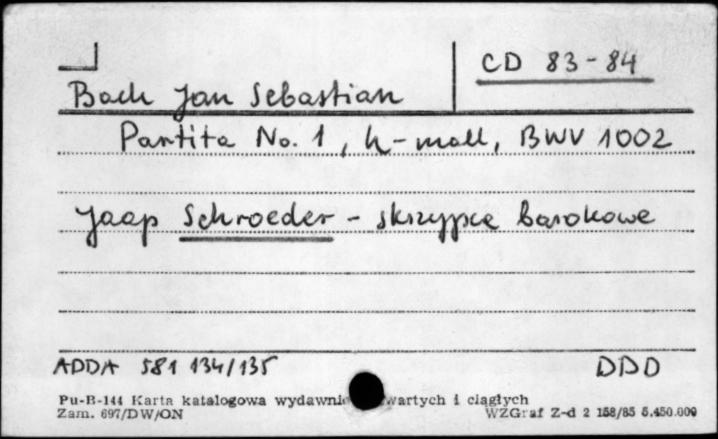 CD 83-84
Bach Jan Sebastian
Partita No. 1, h-moll, BWV 1002
Jaap Schroeder - skrzypce barokowe
ADDA 581 134/135 DDD
Pu-B-144 Karta katalogowa wydawnic wartych i ciągłych
Zam. 697/DW/ON WZGraf Z-d 2 158/85 5.450.000